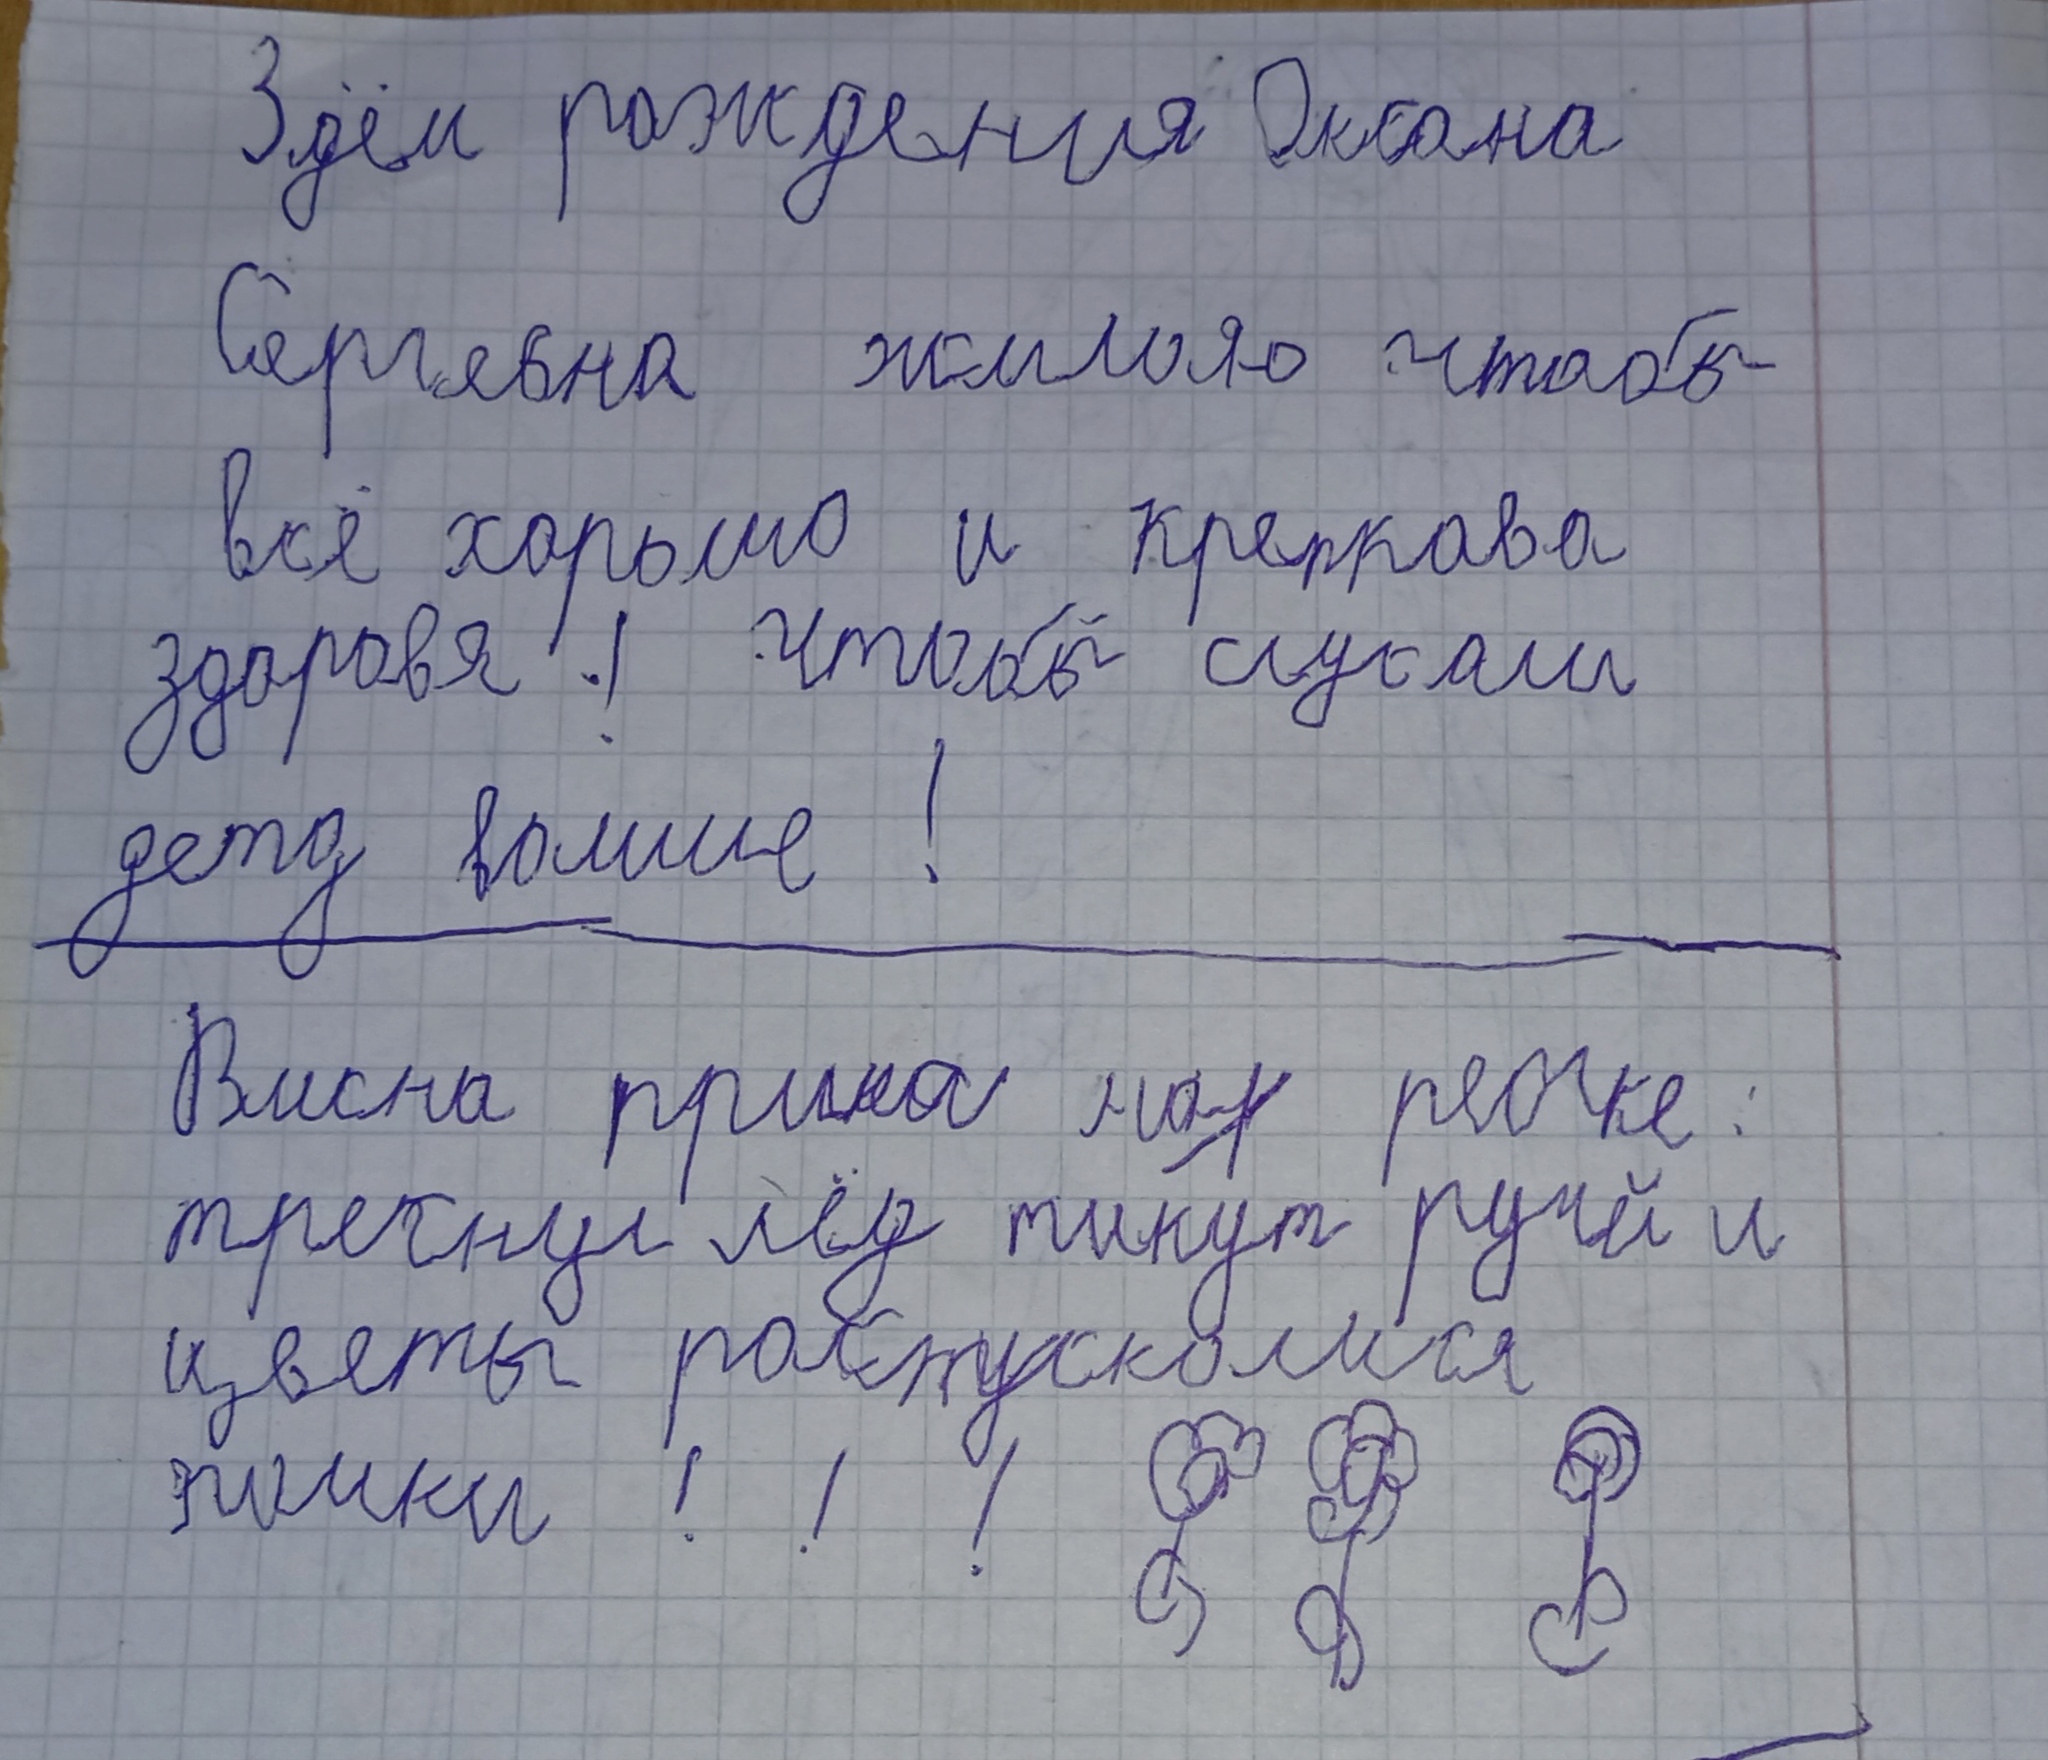 Здём рождения Оксана
Сергевна жилаю чтобы
всё хорьшо и крепкова
здоровя! Чтобы слусали
дето волише!
Висна пришла на речке:
тречнул лёд тикут ручй и
цветы роспусколися
!!!